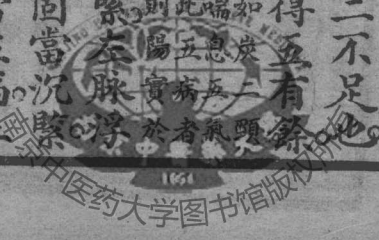 二不足也
得五有餘
如炭二顴
喘息五氣
此五病者
則陽實於
緊左脉浮
固當沉緊
南京中医药大学图书馆版权所有
1954